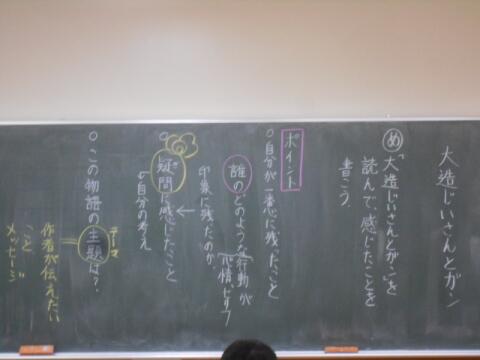 大造じいさんとガン
め 大造じいさんとガンを
読んで、感じたことを
書こう。
ポイント
○自分が一番心に残ったこと
誰のどのような行動が
心情、セリフ
印象に残ったのか。
○疑問に感じたこと
自分の考え
○この物語の主題は?
テーマ
作者が伝えたい
こと
メッセージ